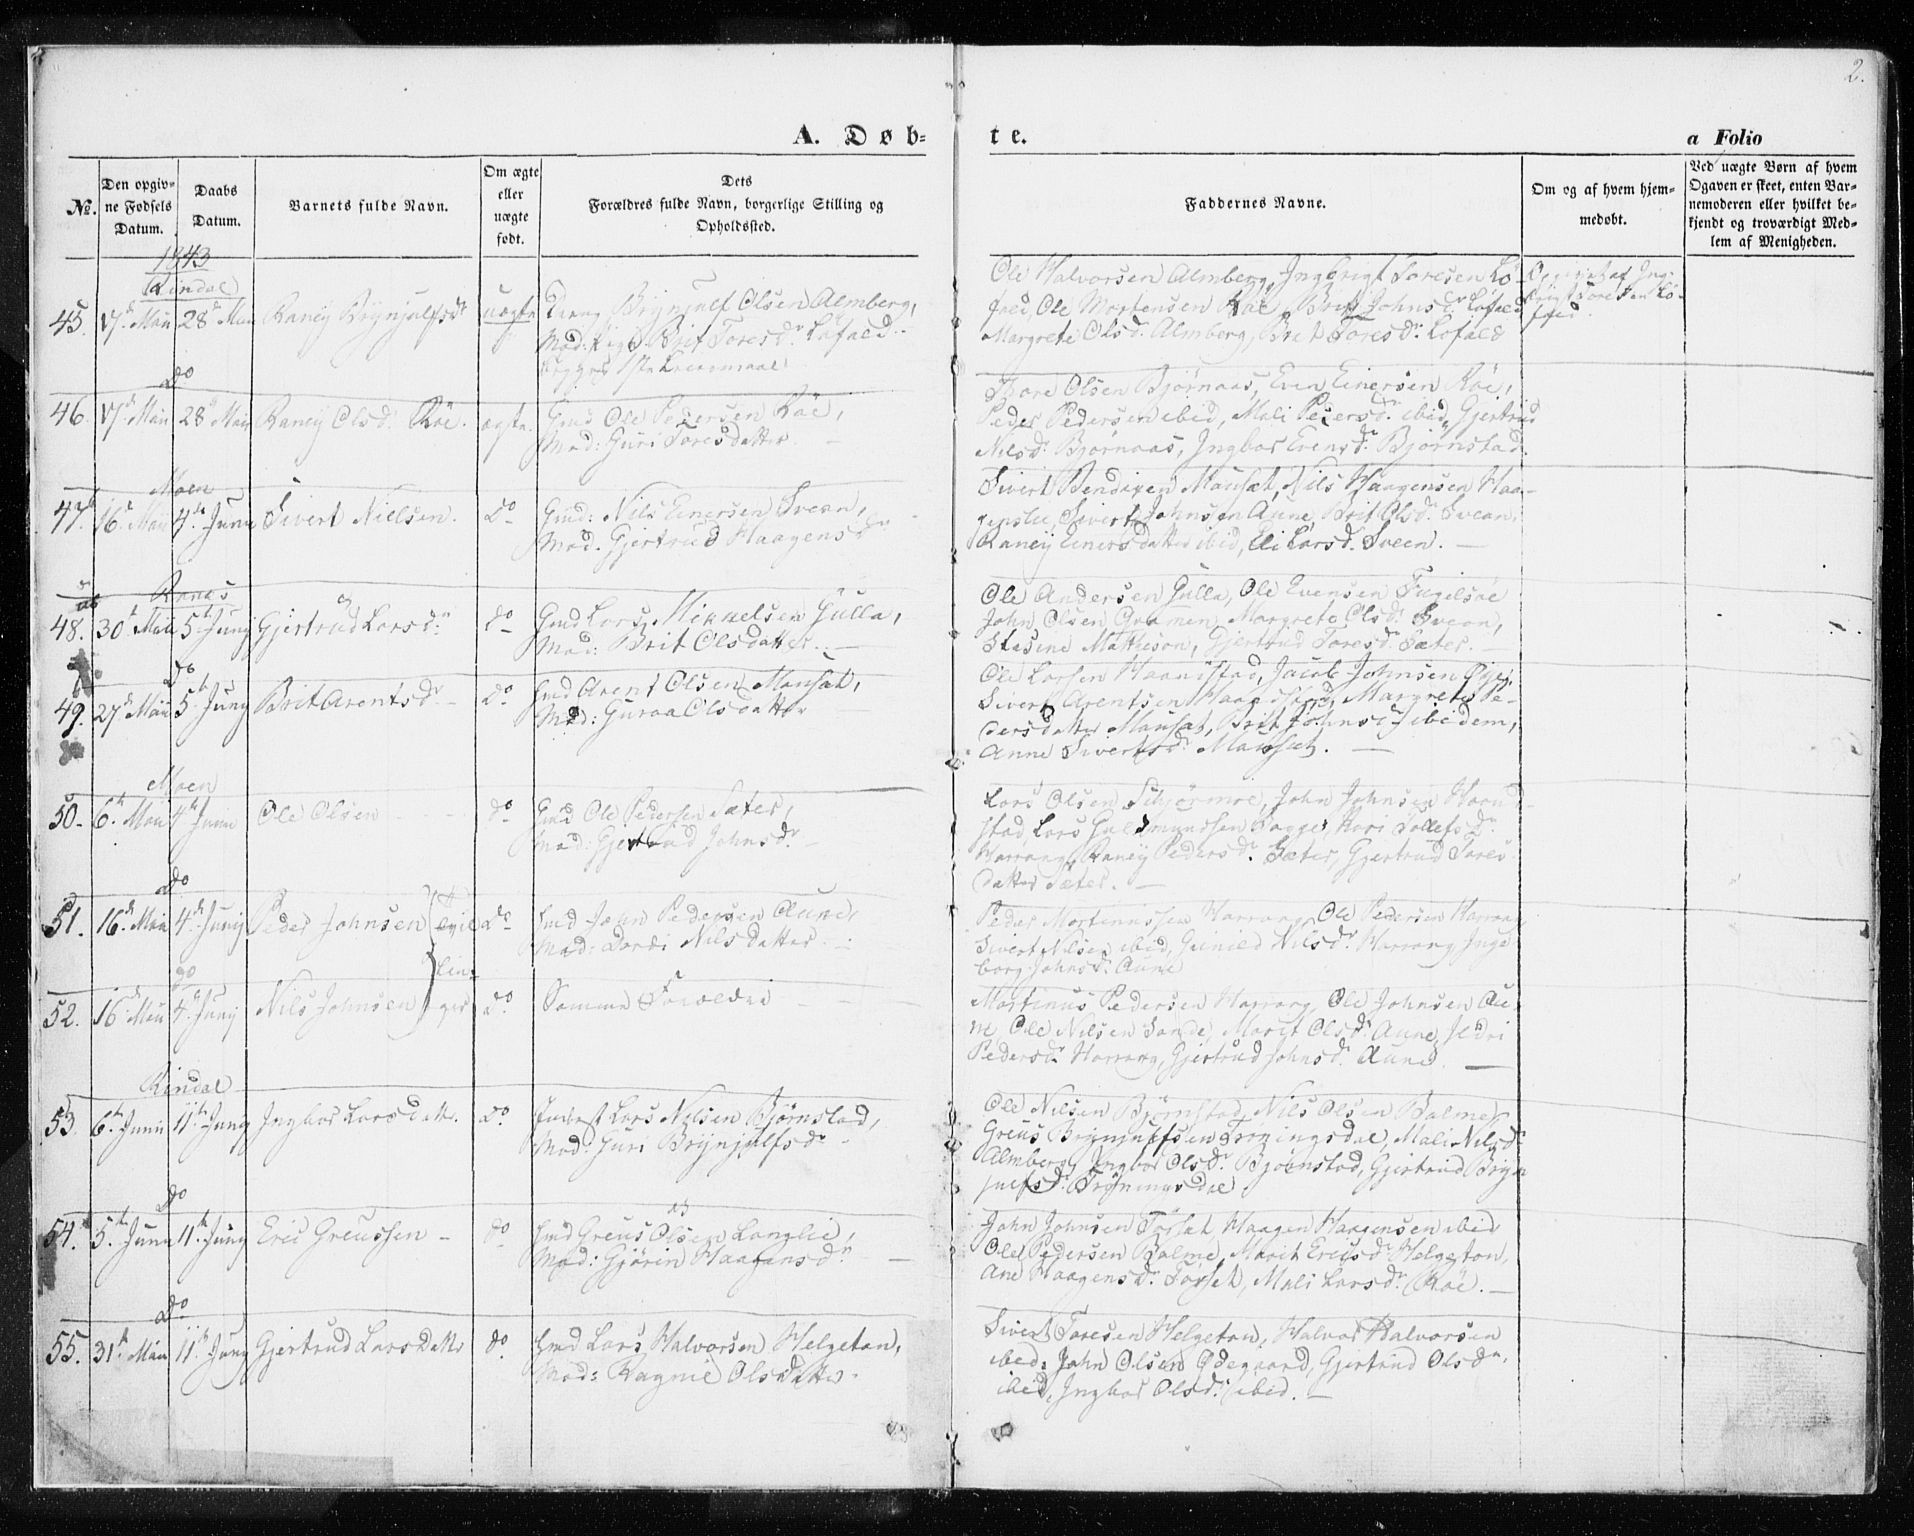 2.
A. Døb-
te.
a Folio
No.
Den opgiv-
ne Fødsels
Datum.
Daabs
Datum.
Barnets fulde Navn.
Om ægte
eller
uægte
født.
Dets
Forældres fulde Navn, borgerlige Stilling og
Opholdssted.
Faddernes Navne.
Om og af hvem hjem-
medøbt.
Ved uægte Børn af hvem
Opgaven er skeet, enten Bar-
nemoderen eller hvilket be-
kjendt og troværdigt Med-
lem af Menigheden.
1843
Rindal
45. 17de Maii 28de Maii Raney Brynjulfsdr uægte Brynjulf Olsen Almberg,
Mod: Pige Brit Toresdr Løfald.
Begges 1ste Leiermaal
Ole Halvorsen Almberg, Ingbrigt Toresen Lø-
fald, Ole Mortensen Røe, Brit Johnsdr Løfald
Margrete Olsdr Almberg, Brit Toresdr Løfald
af Ing-
brigt Toresen Lø-
fald.
Do
46. 17de Maii 28de Maii Raney Olsdr Röe. ægte. Gmd Ole Pedersen Röe,
Mod: Guri Toresdatter.
Tore Olsen Bjørnaas, Even Einersen Röe,
Peder Pedersen ibid, Mali Pedersdr ibid, Gjertrud
Nilsdr Bjørnaas, Ingbor Evensdr Bjørnstad.
Moen
47. 16de Maii 4de Junii Sivert Nielsen. do Gmd: Nils Einersen Sveen,
Mod. Gjertrud Haagensdr
Sivert Bendixen Mausæt, Nils Haagensen Haa-
genslie, Sivert Johnsen Aune, Brit Olsdr Sveen,
Raney Einersdatter ibid, Eli Larsdr Sveen.
Ranes
48. 30te Maii 5te Junij Gjertrud Larsdr do Gmd Lars Mikkelsen Gulla,
Mod: Brit Olsdatter.
Ole Andersen Gulla, Ole Evensen Fugelsøe
John Olsen Qvamen, Margrete Olsdr Sveen,
Stasine Mathison, Gjertrud Toresdr Sæter.
Do
49. 27de Maii 5te Junij Brit Arentsdr do Gmd Arent Olsen Mausæt,
Mod: Guroe Olsdatter
Ole Larsen Haandstad, Jacob Johnsen Øye,
Sivert Arentsen Haandstad, Margrete Pe-
dersdatter Mausæt, Brit Johnsdr ibidem,
Anne Sivertsdr Mausæt.
Moen
50. 6te Maii 4de Junii Ole Olsen do Gmd Ole Pedersen Sæter,
Mod: Gjertrud Johnsdr
Lars Olsen Schjørmoe, John Johnsen Haand-
stad, Lars Guldmundsen Bagge, Kari Tollefsdr
Harrang, Raney Pedersdr Sæter, Gjertrud Tores-
datter Sæter.
Do
51. 16de Maii 4de Junij Peder Johnsen Tvil- do Gmd John Pedersen Aune,
Mod: Dordi Nilsdatter.
Peder Martinussen Harrang, Ole Pedersen Harrang
Sivert Nilsen ibid, Gunild Nilsdr Harrang, Inge-
borg Johnsdr Aune
do
52. 16de Maii 4de Junij Nils Johnsen lin-
ger do Samme Forældre
Martinus Pedersen Harrang, Ole Johnsen Au-
ne, Ole Nilsen Sande, Marit Olsdr Aune, Ildri
Pedersdr Harrang, Gjertrud Johnsdr Aune.
Rindal
53. 6te Junii 11te Junij Ingbor Larsdatter. do Inderst Lars Nilsen Bjørnstad,
Mod: Guri Brynjulfsdr
Ole Nilsen Bjørnstad, Nils Olsen Balme,
Greus Brynjulfsen Trøningsdal, Mali Nilsdr
Almberg, Ingbor Olsdr Bjørnstad, Gjertrud Bryn-
julfsdr Trøningsdal
Do
54. 5te Junii 11te Junij Eric Greussen do Gmd Greus Olsen Langlie,
Mod: Gjørin Haagensdr
John Johnsen Torset, Haagen Haagensen ibid
Ole Pedersen Balme, Marit Ericsdr Helgeton,
Ane Haagensdr Torset, Mali Larsdr Röe.
Do
55. 31te Maii 11te Junij Gjertrud Larsdatter do Gmd Lars Halvorsen Helgeton,
Mod: Ragnil Olsdatter.
Sivert Toresen Helgeton, Halvor Halvorsen
ibid: John Olsen Ødegaard, Gjertrud Olsdr
ibid, Ingbor Olsdr ibid.